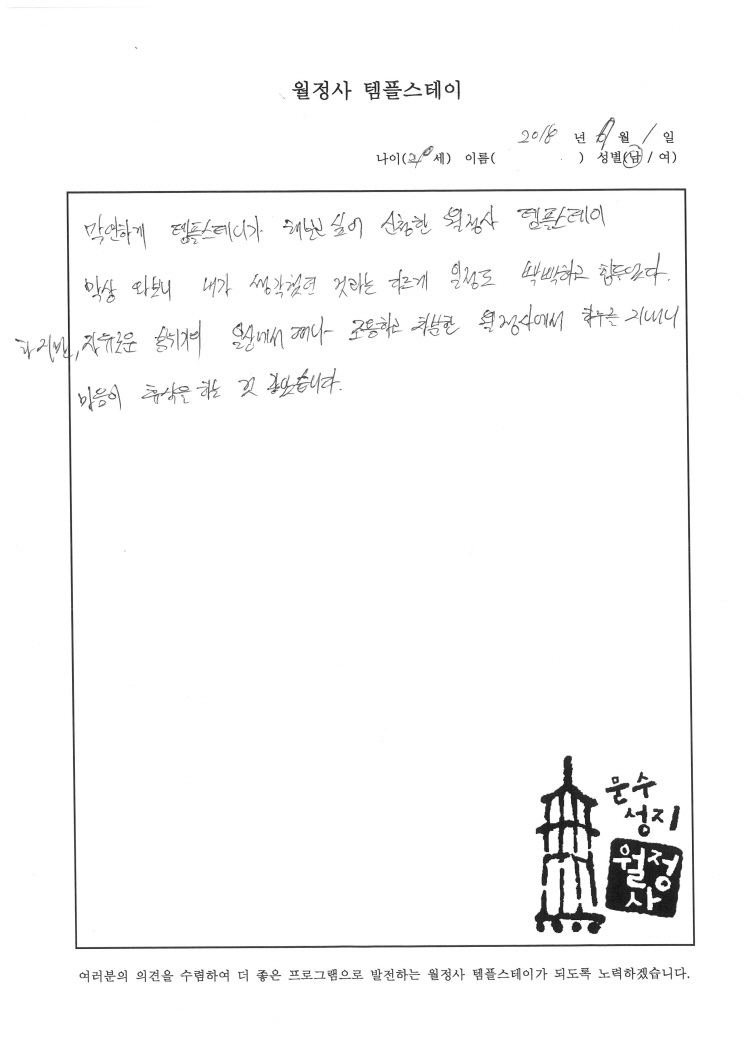 월정사 템플스테이
2018 년 9 월 1 일
나이(20세) 이름( ) 성별(남/여)
막연하게 템플스테이가 해보고 싶어 신청한 월정사 템플스테이
막상 와보니 내가 생각했던 것과는 다르게 일정도 빡빡하고 힘두었다.
하지만, 자유로운 일상에서 떠나 조용하고 차분한 월정사에서 하루를 지내니
마음이 휴식을 하는 것 같았습니다.
문수
성지
월정
사
여러분의 의견을 수렴하여 더 좋은 프로그램으로 발전하는 월정사 템플스테이가 되도록 노력하겠습니다.